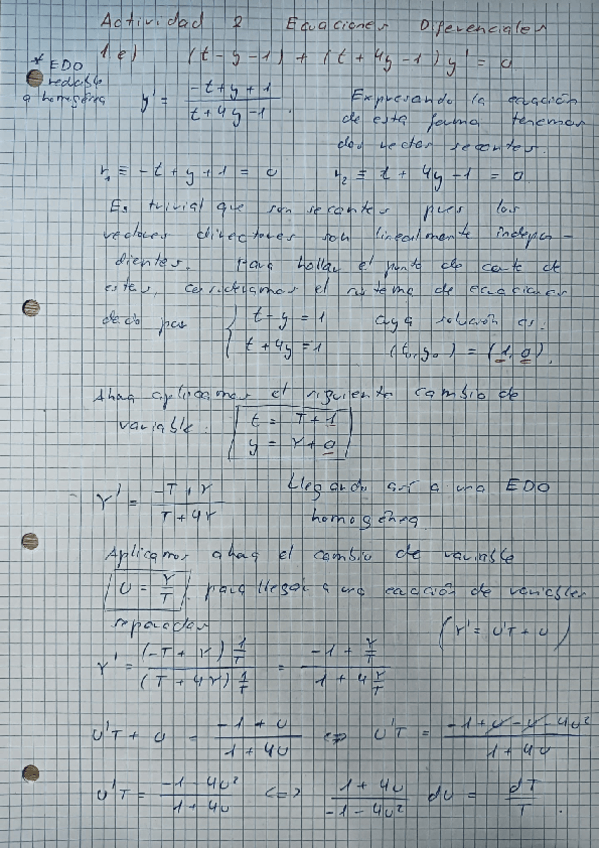 Actividad 2 Ecuaciones Diferenciales
1 e) (t-y-1) + (t+4y-1) y' = 0
* EDO reducible a homogénea
y' = (-t+y+1)/(t+4y-1). Expresando la ecuación
de esta forma tenemos
dos rectas secantes.
r₁ ≡ -t+y+1 = 0 r₂ ≡ t+4y-1 = 0
Es trivial que son secantes pues los
vectores directores son linealmente indepen-
dientes. Para hallar el punto de corte de
estas, consideramos el sistema de ecuaciones
dado por { t-y = 1 cuya solución es:
t+4y = 1 (t₀, y₀) = (1, 0).
Ahora aplicamos el siguiente cambio de
variable: { t = T+1
y = Y+0
Y' = (-T+Y)/(T+4Y) Llegando así a una EDO
homogénea
Aplicamos ahora el cambio de variable
U = Y/T, para llegar a una ecuación de variables
separadas (Y' = U'T + U)
Y' = ((-T+Y) 1/T)/((T+4Y) 1/T) = (-1 + Y/T)/(1 + 4 Y/T)
U'T + U = (-1+U)/(1+4U) <=> U'T = (-1+U-U-4U²)/(1+4U)
U'T = (-1-4U²)/(1+4U) <=> (1+4U)/(-1-4U²) dU = dT/T.